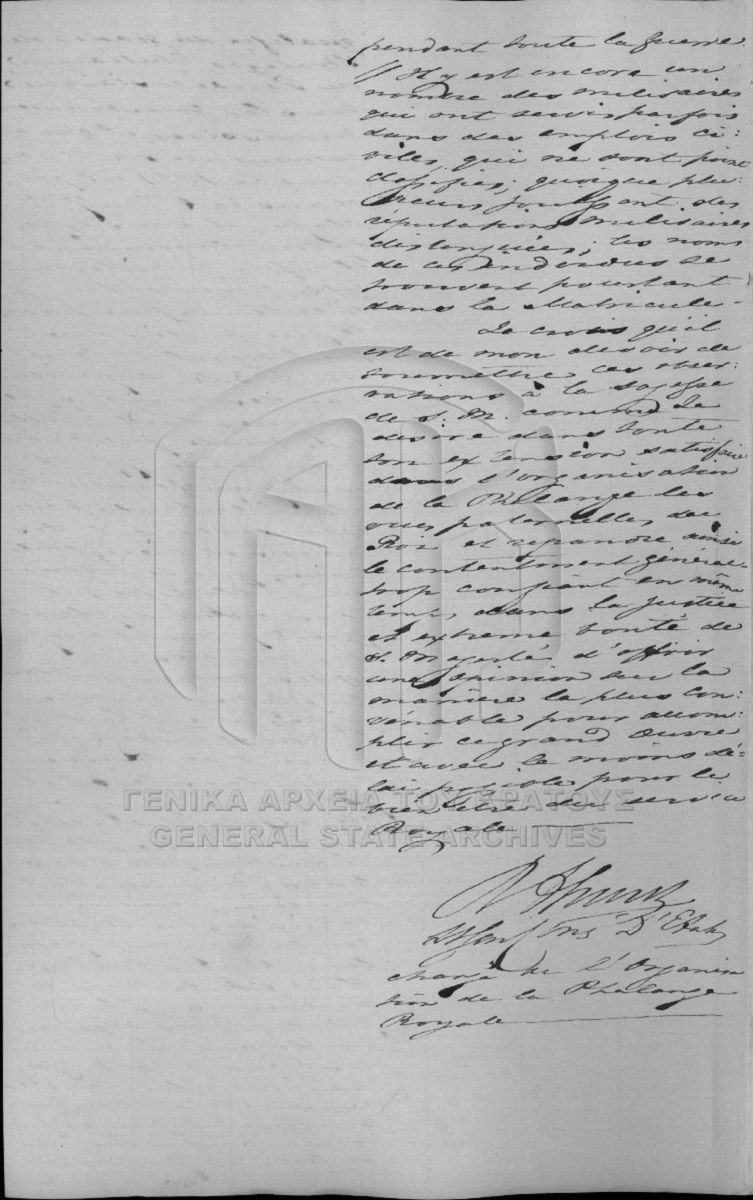 pendant toute la guerre
Il y est encore un
nombre des militaires
qui ont servis parfois
dans des emplois ci-
viles, qui ne sont point
classifiés, quoique plu-
sieurs jouissant des
réputations militaires
distinguées; les noms
de ces individus se
trouvent pourtant
dans la Matricule -
Je crois qu'il
est de mon devoir de
soumettre ces obser-
vations à la sagesse
de S. M. comme Je
désire dans toute
son extension satisfaire
dans l'organisation
de la Phalange les
vues paternelles du
Roi et repandre ainsi
le contentement général
trop confiant en même
tems, dans la justice
et extreme bonté de
S. Majesté d'offrir
une opinion sur la
manière la plus con-
vénable pour accom-
plir ce grand Œuvre
et avec le moins dé-
lai possible pour le
bien être du service
Royale
D'Etat
chargé de l'Organisa
tion de la Phalange
Royale
ΓΕΝΙΚΑ ΑΡΧΕΙΑ ΤΟΥ ΚΡΑΤΟΥΣ
GENERAL STATE ARCHIVES